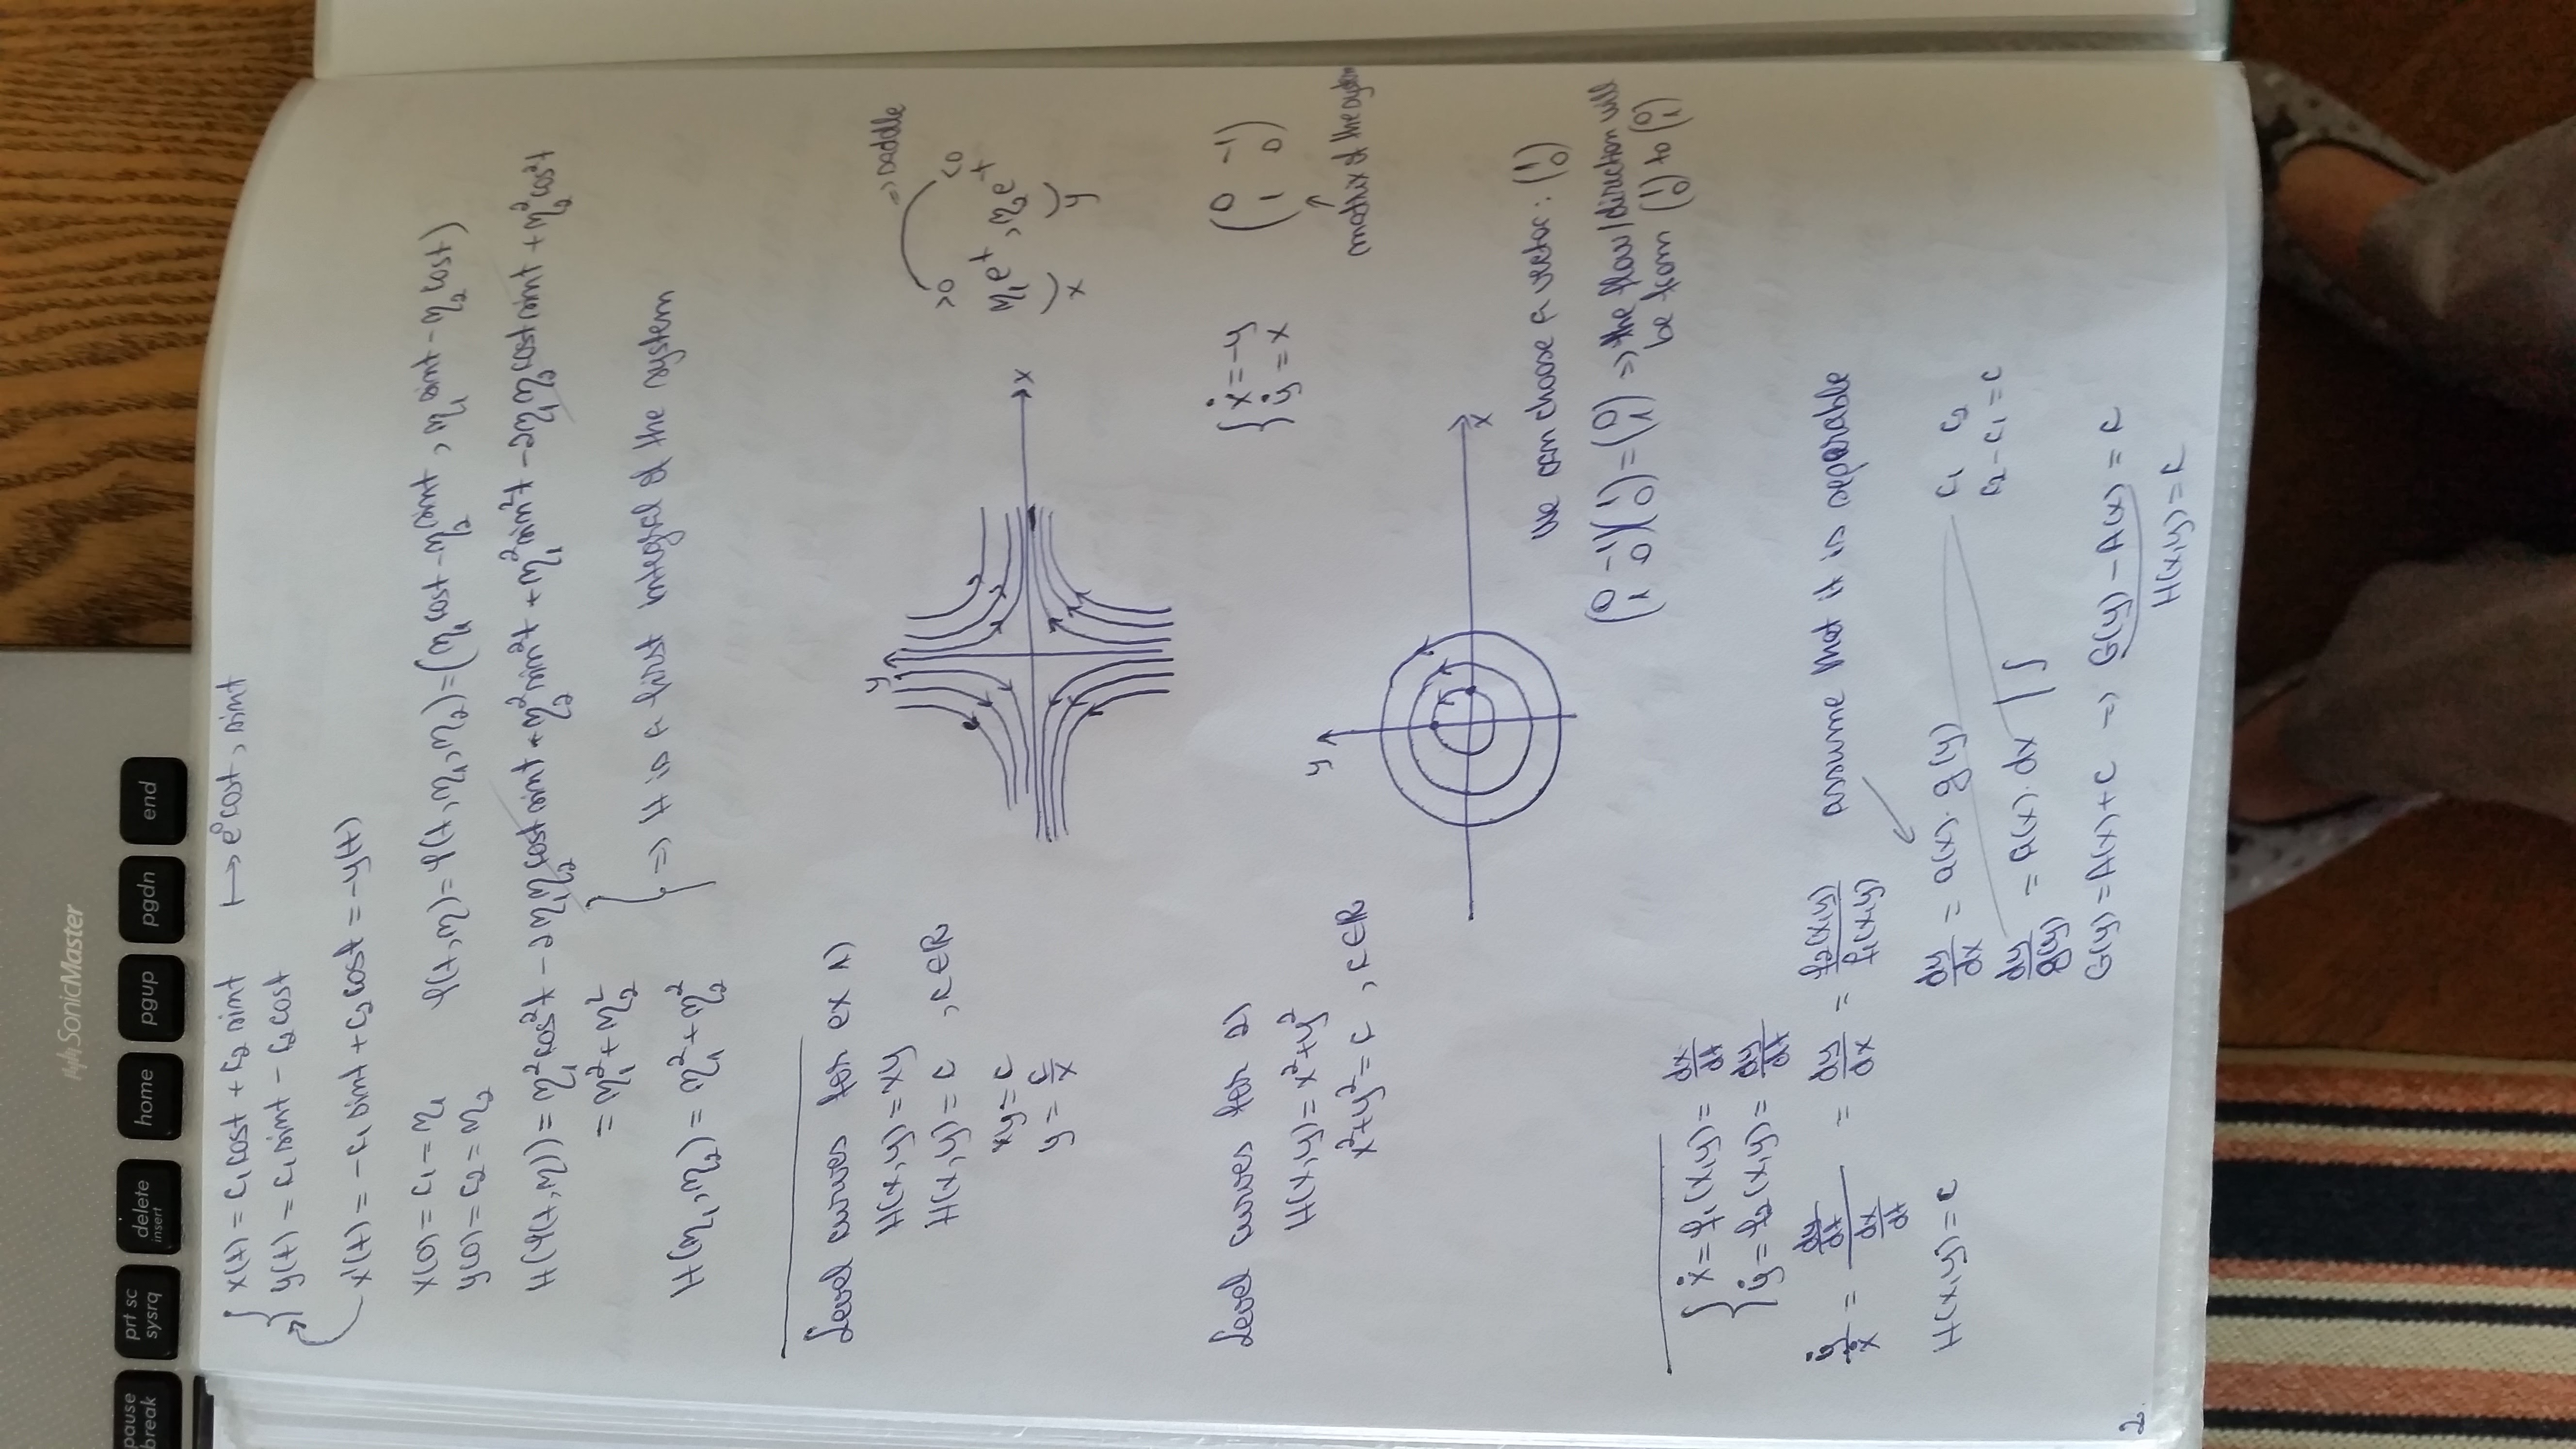 SonicMaster
pause break
prt sc sysrq
delete insert
home
pgup
pgdn
end
x(t) = c₁ cost + c₂ sint ↦ e⁰cost, sint
y(t) = c₁ sint - c₂ cost
x'(t) = -c₁ sint + c₂ cost = -y(t)
x(0) = c₁ = η₁
y(0) = c₂ = η₂
φ(t,η) = φ(t,η₁,η₂) = (η₁ cost - η₂ sint, η₁ sint - η₂ cost)
H(φ(t,η)) = η₁² cos²t - 2η₁η₂ cost sint + η₂² sin²t + η₁² sin²t - 2η₁η₂ cost sint + η₂² cos²t
= η₁² + η₂²
H(η₁,η₂) = η₁² + η₂²
=> H is a first integral of the system
Level curves for ex 1)
H(x,y) = xy
H(x,y) = c , c∈ℝ
xy = c
y = c/x
y
x
=> saddle
>0 <0
η₁e^t, η₂e^t
x y
Level curves for 2)
H(x,y) = x²+y²
x²+y² = c , c∈ℝ
{ẋ = -y
ẏ = x
(0 -1
1 0)
matrix of the system
y
x
We can choose a vector: (1 0)
(0 -1 1 0)(1 0) = (0 1) => the flow/direction will
be from (1 0) to (0 1)
{ẋ = f₁(x,y) = dx/dt
ẏ = f₂(x,y) = dy/dt
ẏ/ẋ = (dy/dt)/(dx/dt) = dy/dx = f₂(x,y)/f₁(x,y) assume that it is separable
H(x,y) = c
dy/dx = a(x)·g(y)
c₁ c₂
c₂ - c₁ = c
dy/g(y) = a(x)·dx | ∫
G(y) = A(x) + c => G(y) - A(x) = c
H(x,y) = c
2.